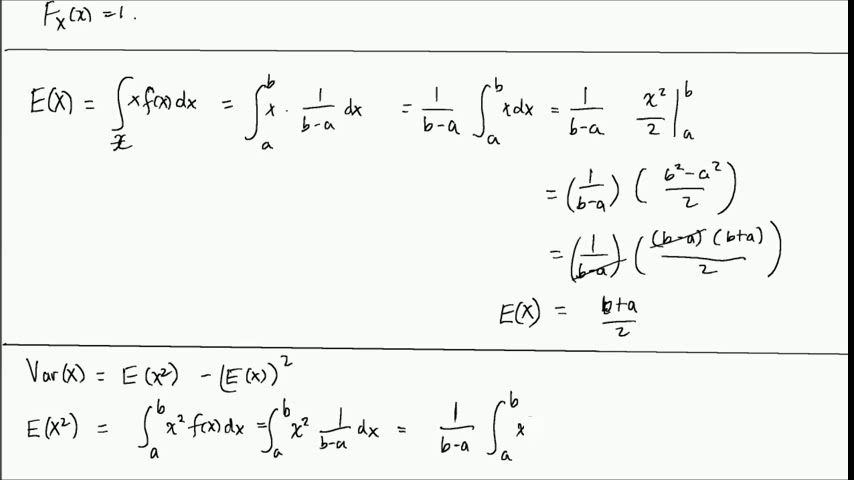 F_X(x) = 1.
E(X) = ∫_𝓧 x f(x) dx = ∫_a^b x · 1/(b-a) dx = 1/(b-a) ∫_a^b x dx = 1/(b-a) x²/2 |_a^b
= (1/(b-a)) ((b²-a²)/2)
= (1/(b-a)) ((b-a)(b+a)/2)
E(X) = (b+a)/2
Var(X) = E(X²) - (E(X))²
E(X²) = ∫_a^b x² f(x) dx = ∫_a^b x² 1/(b-a) dx = 1/(b-a) ∫_a^b x